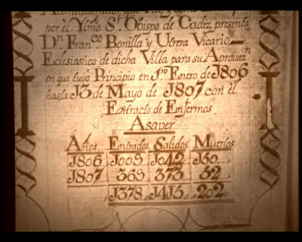 por el Ylmo Sr. Obispo de Cadiz, presenta
Dn. Franco. Bonilla y Utrra Vicario
Eclesiastico de dicha Villa para su Aprovazn.
en que tuvo Principio en 1ro Enero de 1806
hasta 13 de Mayo de 1807 con el
Extracto de Enfermos
Asaver
Años Entrados Salidos Muertos
1806 1009 1042 150
1807 369 373 52
1378 1415 202